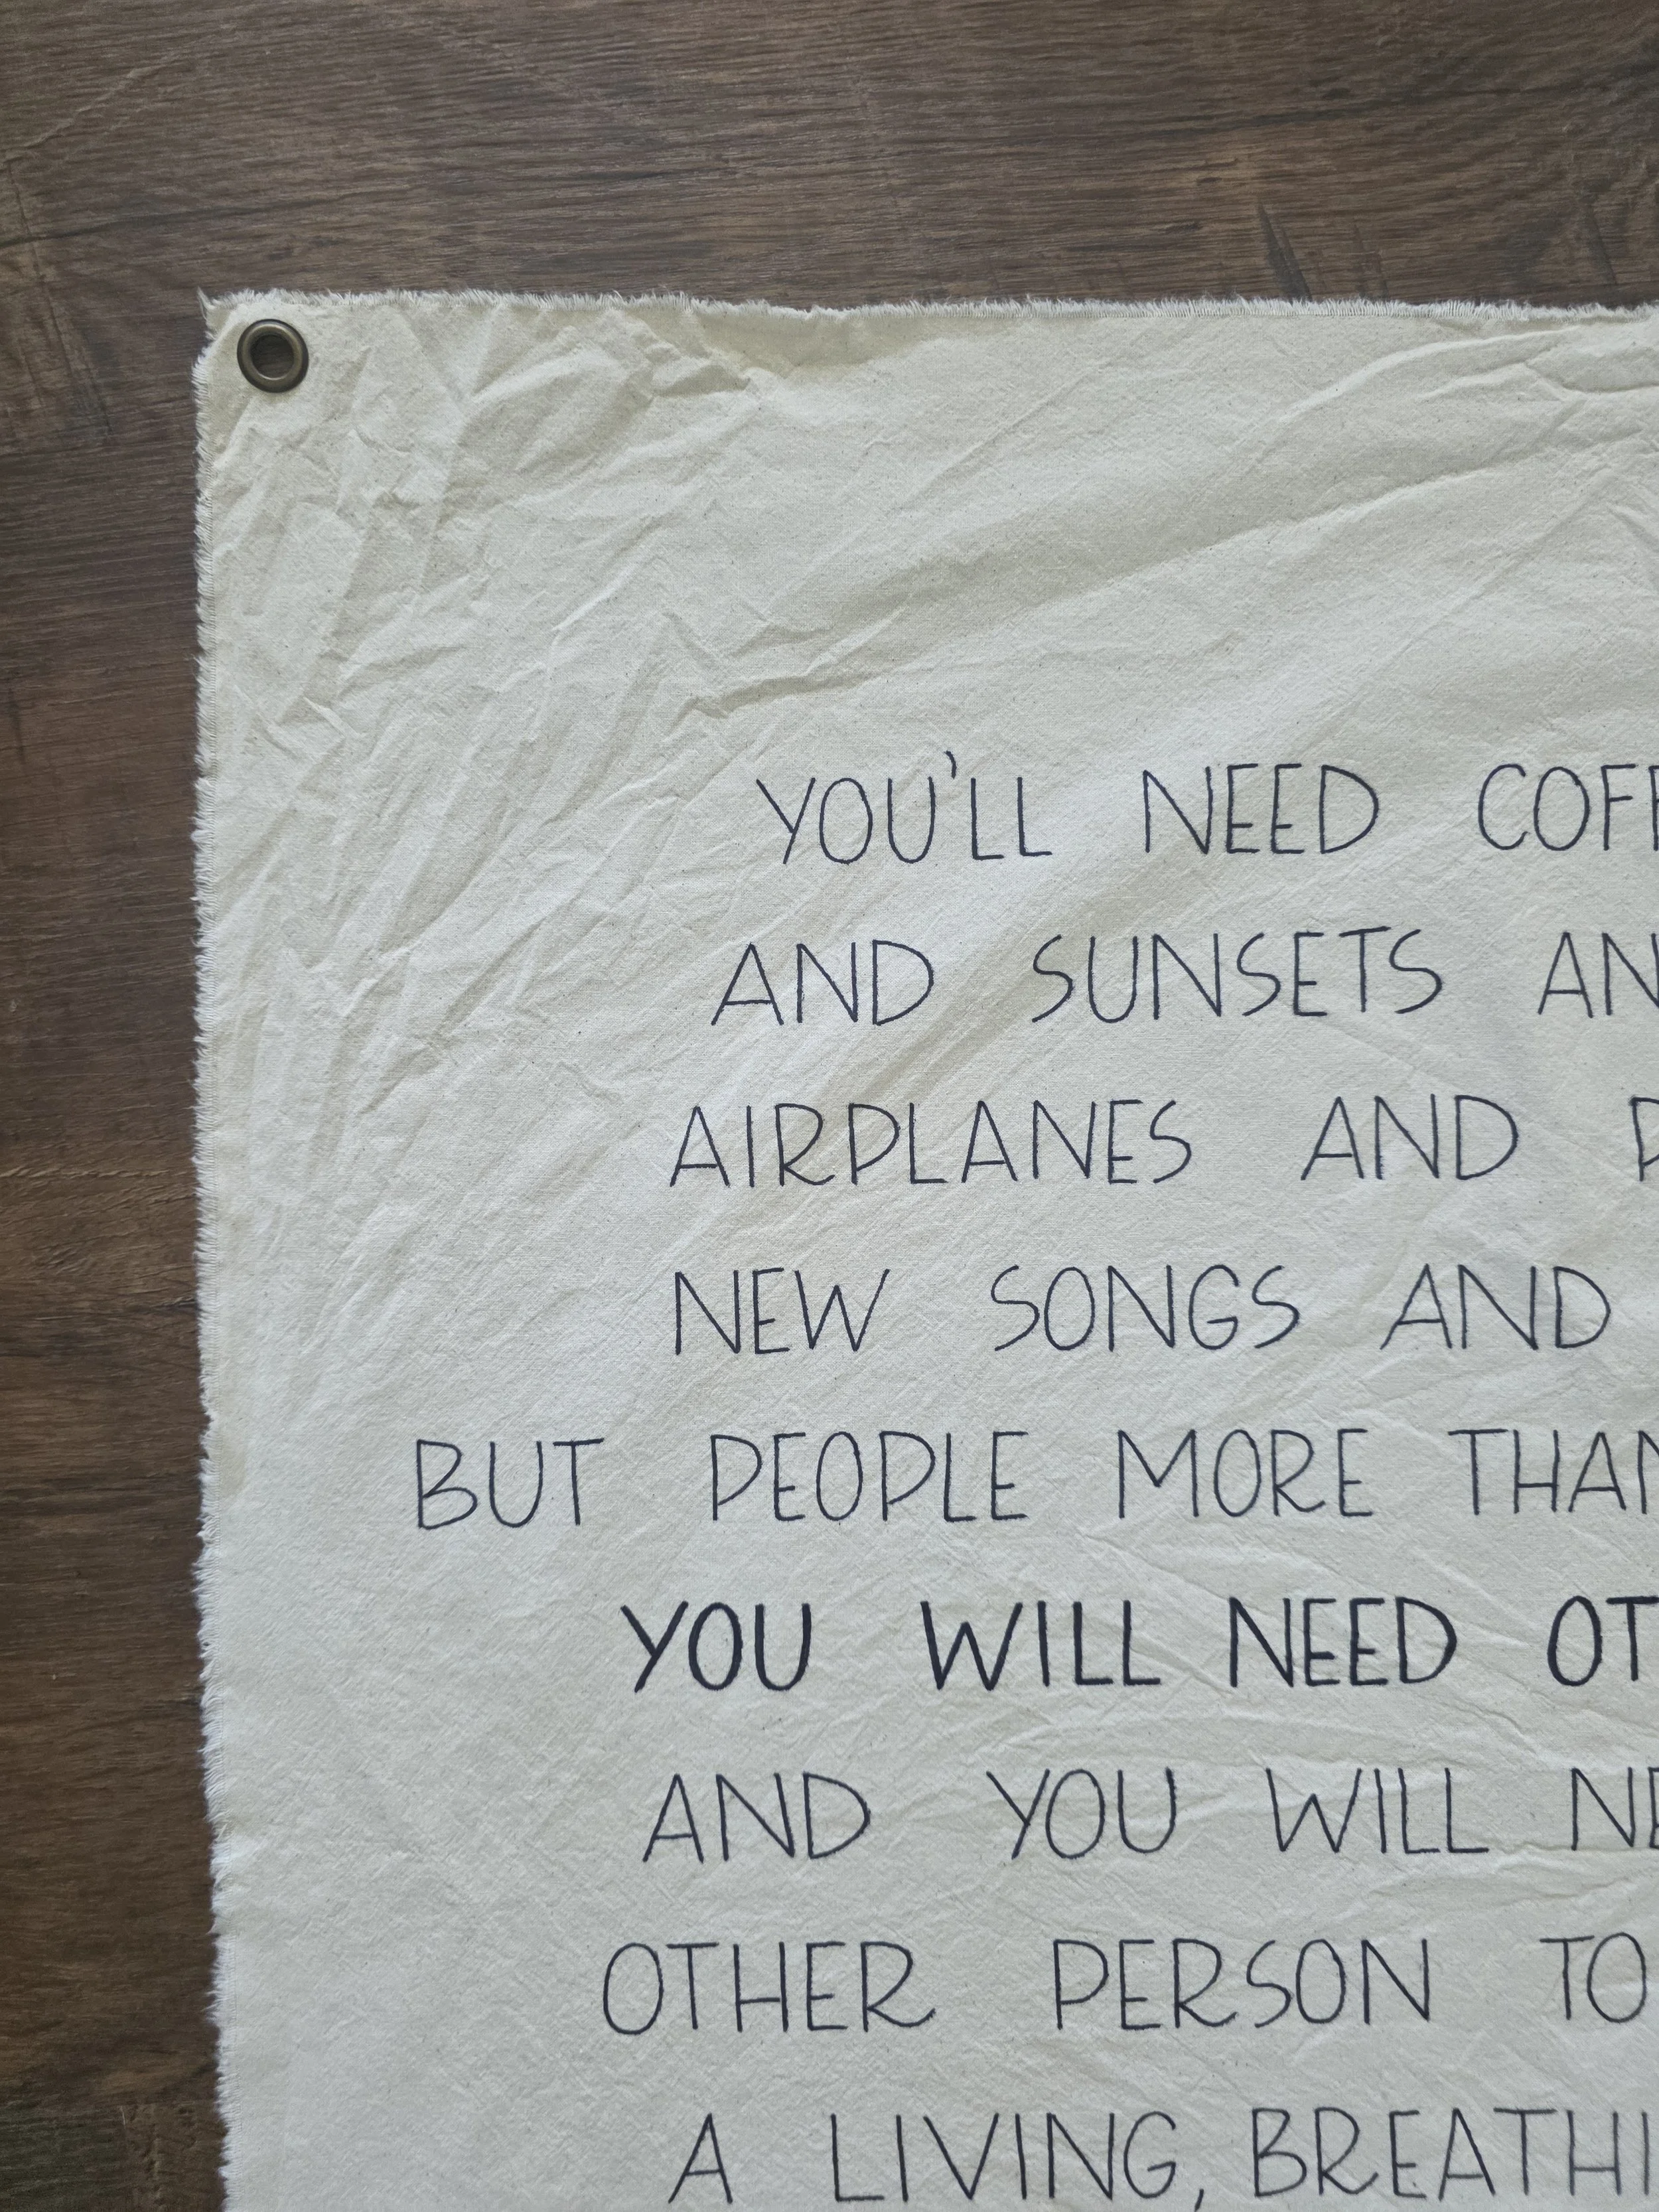 YOU'LL NEED COFF
AND SUNSETS AN
AIRPLANES AND
NEW SONGS AND
BUT PEOPLE MORE THAN
YOU WILL NEED OT
AND YOU WILL NE
OTHER PERSON TO
A LIVING, BREATHI